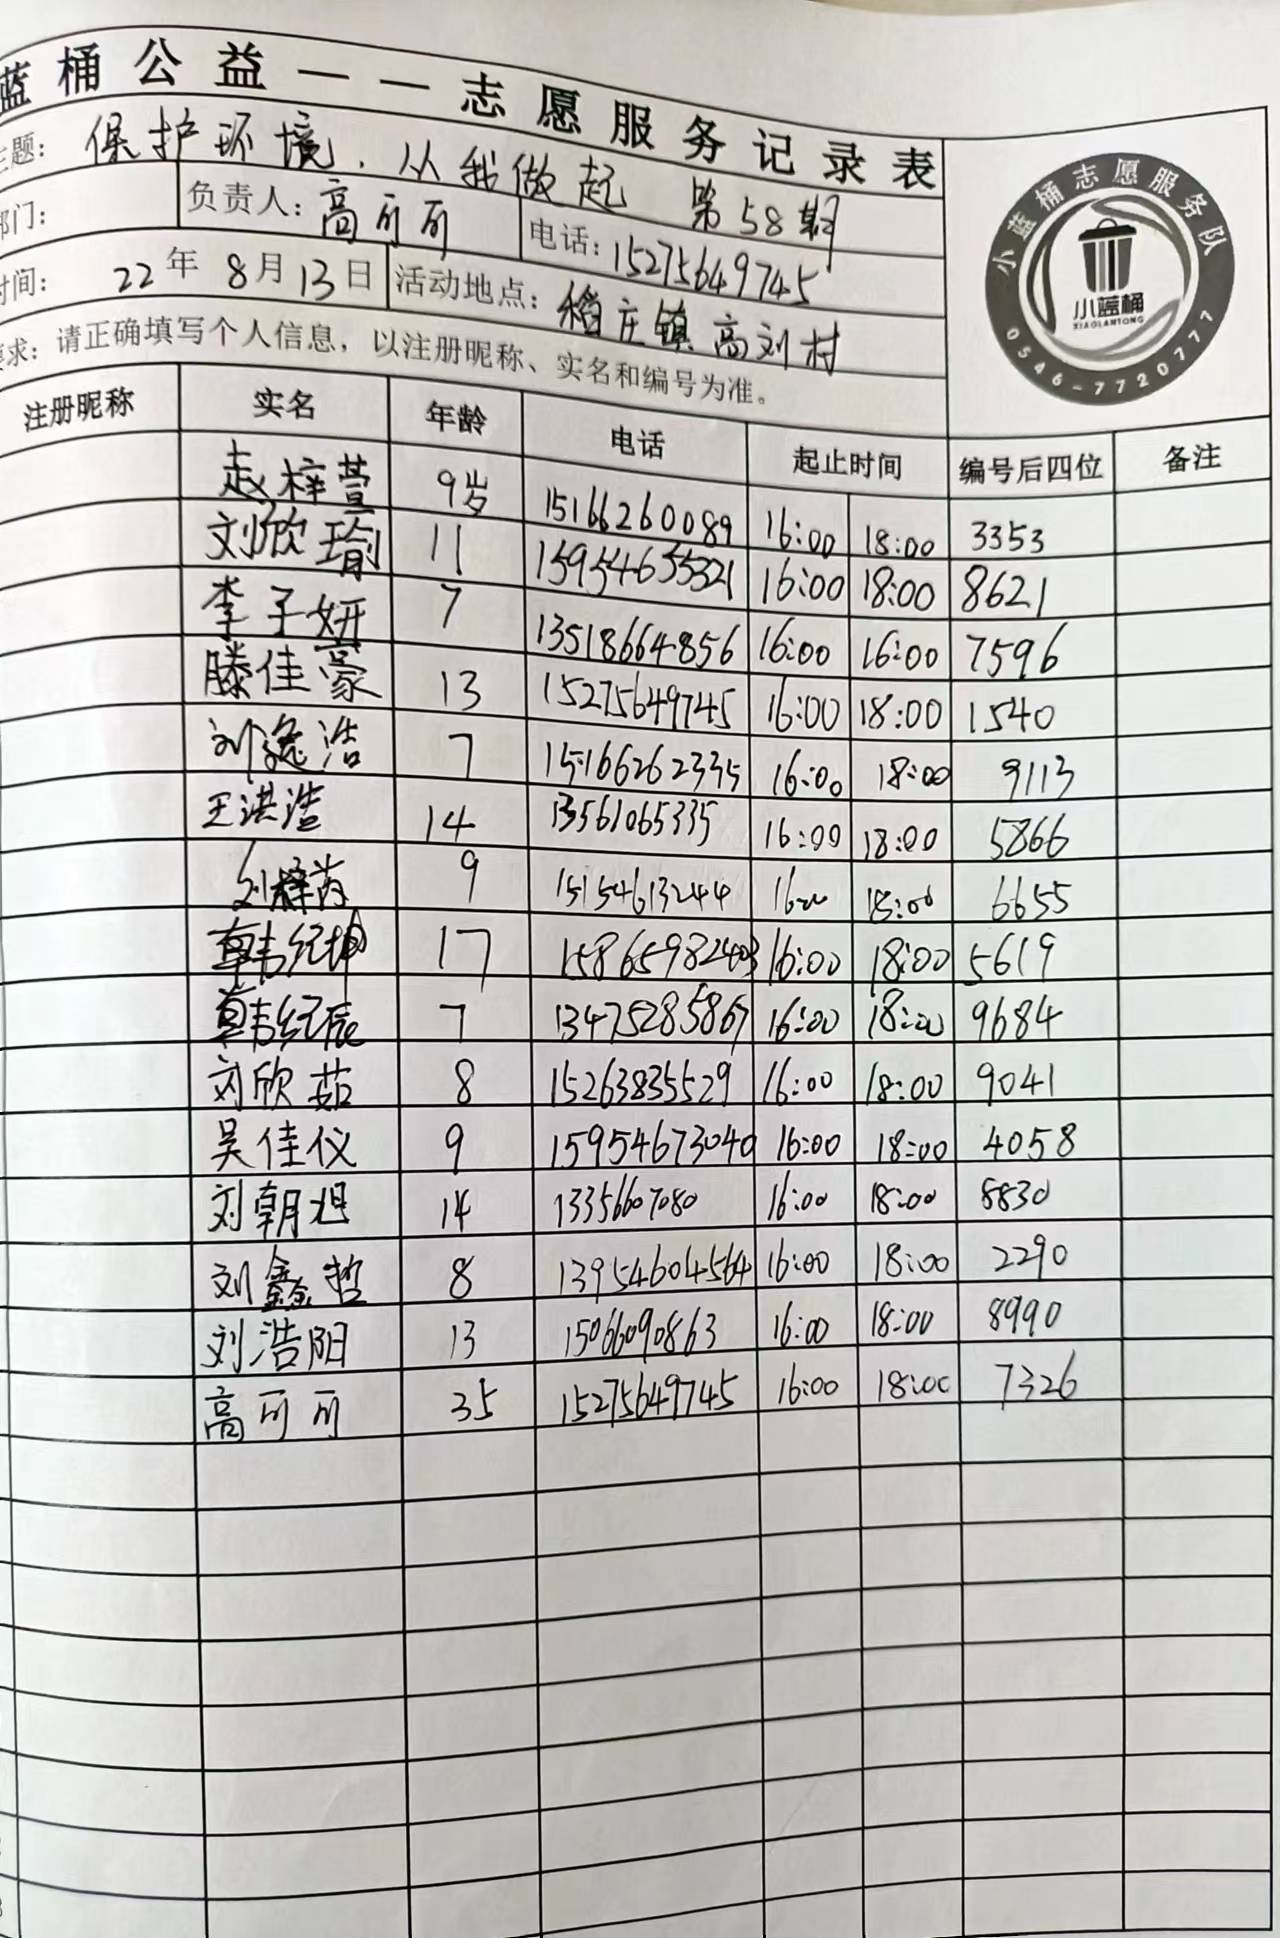 蓝桶公益——志愿服务记录表
主题: 保护环境,从我做起 第58期
部门: 负责人: 高可可 电话: 15275649745
时间: 22年8月13日 活动地点: 稻庄镇高刘村
要求: 请正确填写个人信息,以注册昵称、实名和编号为准。
小蓝桶志愿服务队
小蓝桶
XIAOLANTONG
0546-7720777
注册昵称 实名 年龄 电话 起止时间 编号后四位 备注
赵梓萱 9岁 15166260089 16:00 18:00 3353
刘欣瑜 11 15954655321 16:00 18:00 8621
李子妍 7 13518664856 16:00 16:00 7596
滕佳豪 13 15275649745 16:00 18:00 1540
刘逸浩 7 15166262335 16:00 18:00 9113
王洪渣 14 13561065335 16:00 18:00 5866
刘梓芮 9 15154613244 16:00 18:00 6655
韩纪坤 17 15865982403 16:00 18:00 5619
韩纪辰 7 13475285867 16:00 18:00 9684
刘欣茹 8 15263835529 16:00 18:00 9041
吴佳仪 9 15954673040 16:00 18:00 4058
刘朝旭 14 13356607080 16:00 18:00 8830
刘鑫哲 8 13954604564 16:00 18:00 2290
刘浩阳 13 15066090863 16:00 18:00 8990
高可可 35 15275649745 16:00 18:00 7326